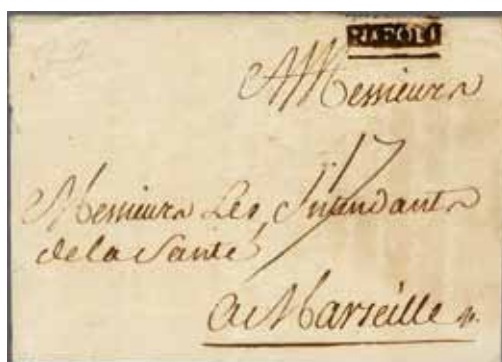 NAPOLI
A Messieurs
17
Messieurs Les Intendants
de la Santé
a Marseille